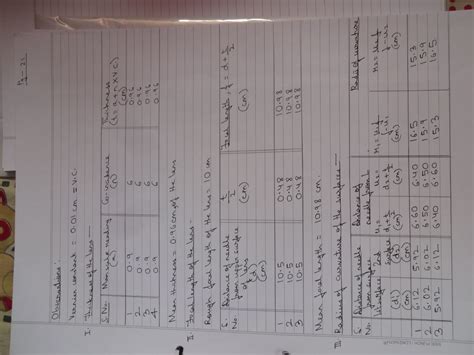 Observations:
Vernier constant = 0.01 cm = V.C.
I. Thickness of the Lens —
S.No. Main scale reading (a) Coincidence (n) Thickness (t = a + n x V.C) (cm)
1 0.9 6 0.96
2 0.9 6 0.96
3 0.9 6 0.96
4 0.9 6 0.96
Mean thickness = 0.96 cm of the lens
II. Focal length of the lens —
Rough focal length of the lens = 10 cm
S. No Distance of needle from upper surface of lens (cm) t/2 Focal length, f = d + t/2 (cm)
1 10.5 0.48 10.98
2 10.5 0.48 10.98
3 10.5 0.48 10.98
Mean focal length = 10.98 cm.
III Radius of curvature of the surfaces —
S. No. Distance of needle from surface Distance of needle from Radii of curvature
1 6.12 5.92 6.60 6.40 16.5 15.3
2 6.02 6.02 6.50 6.50 15.9 15.9
3 5.92 6.12 6.40 6.60 15.3 16.5